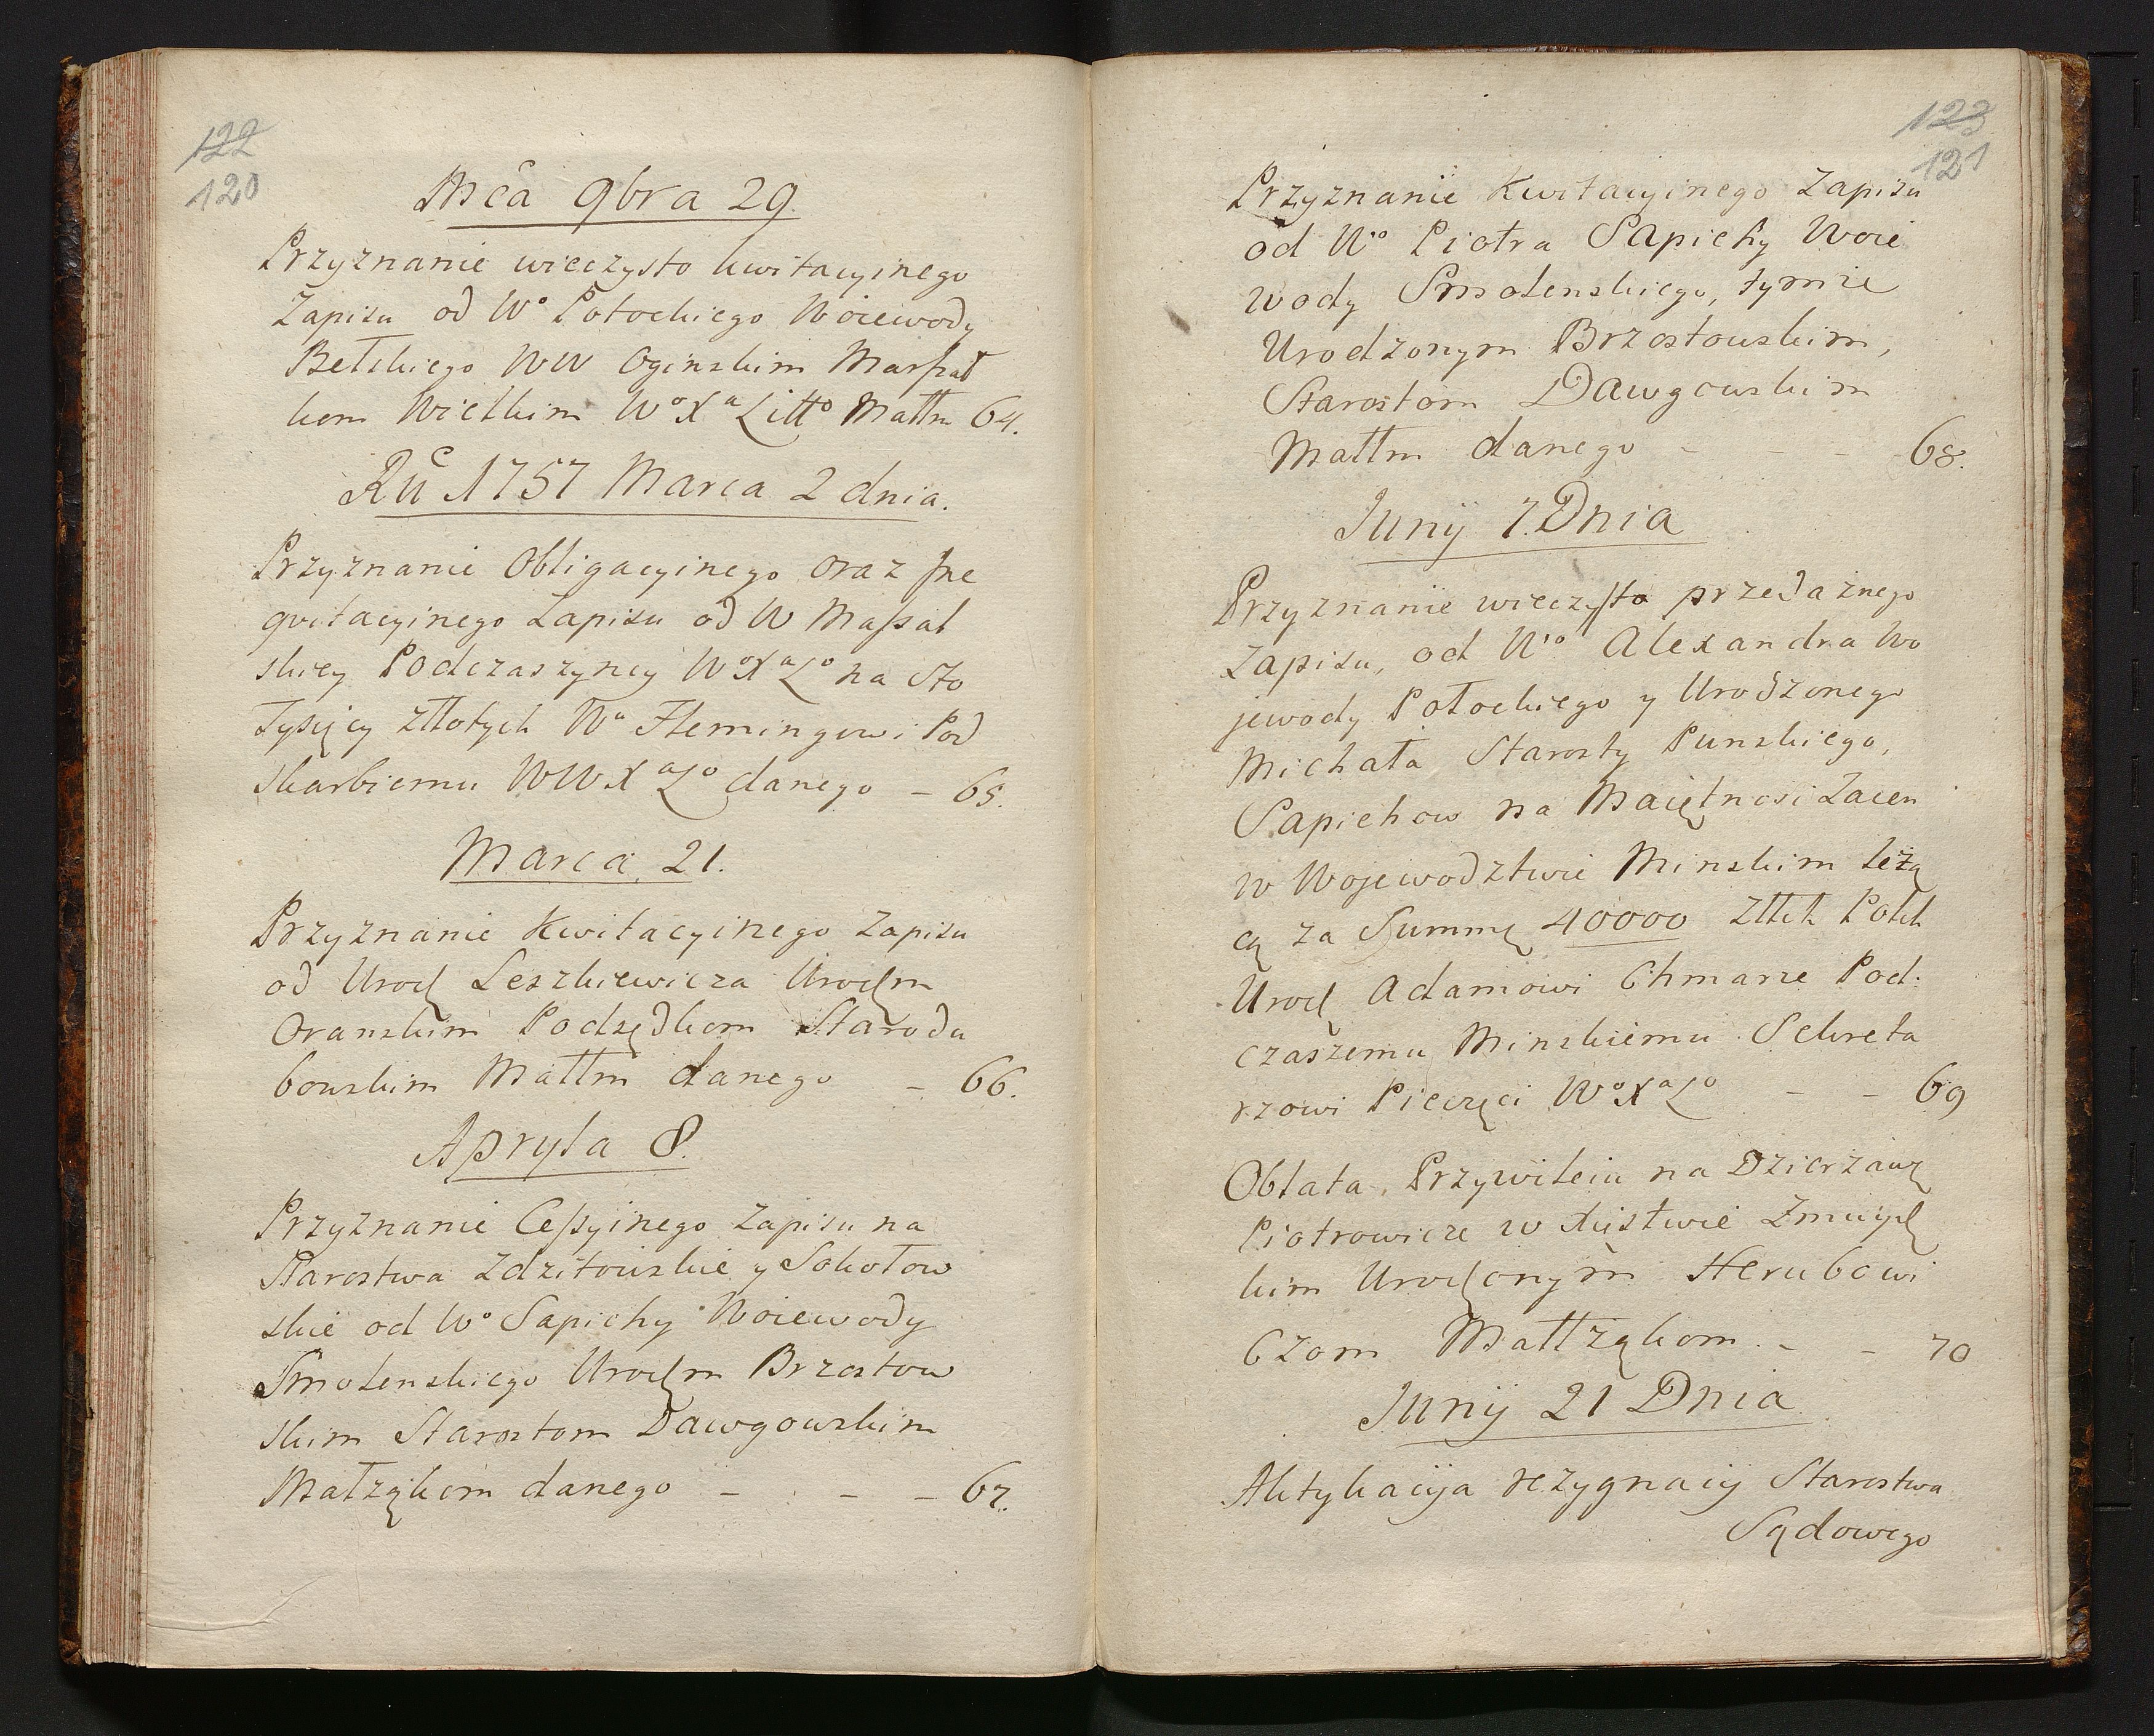 122
120
Mca 9bra 29.
Przyznanie wieczysto kwitacyinego
Zapisu od Wo Potockiego Woiewody
Bełskiego WW Oginskim Marszał
kom Wielkim Wo Xa Litto Małłm 64.
Ru 1757 Marca 2 dnia.
Przyznanie Obligacyinego oraz Ine
qvitacyinego Zapisu od W Massal
skiey Podczaszyney Wo Xa Lo na Sto
Tysięcy złłotych Wu Flemingowi Pod
skarbiemu WWXaLo danego – 65.
Marca 21.
Przyznanie Kwitacyinego Zapisu
od Urodz Leszkiewicza Urodzm
Oranskim Podsędkom Starodu
bowskim Małłm danego – 66.
Apryla 8.
Przyznanie Cessyinego Zapisu na
Starostwa Zdzitowskie y Sokołow
skie od Wo Sapiehy Woiewody
Smolenskiego Urodzm Brzostow
skim Starostom Dawgowskim
Małząkom danego – – – 67.
123
121
Przyznanie Kwitacyinego Zapisu
od Wo Piotra Sapiehy Woie
wody Smolenskiego, tymże
Urodzonym Brzostowskim,
Starostom Dawgowskim
Małłm danego – – – 68.
Junij 7. Dnia
Przyznanie wieczysto przedażnego
Zapisu, od Wo Alexandra Wo
jewody Połockiego y Urodzonego
Michała Starosty Punskiego,
Sapiehow na Maiętnosi Zacen
w Wojewodztwie Minskim leżą
cą za Summę 40000 złłch Polch
Urodz Adamowi Chmarze Pod:
czaszemu Minskiemu Sekreta
rzowi Pieczęci Wo Xa Lo – – 69
Oblata Przywileiu na Dzierżawę
Piotrowicze w Xięstwie Zmuydz
kim Urodzonym Herubowi
czom Małłżąkom – – 70
Junij 21 Dnia
Aktykacyja rezygnacij Starostwa
Sądowego